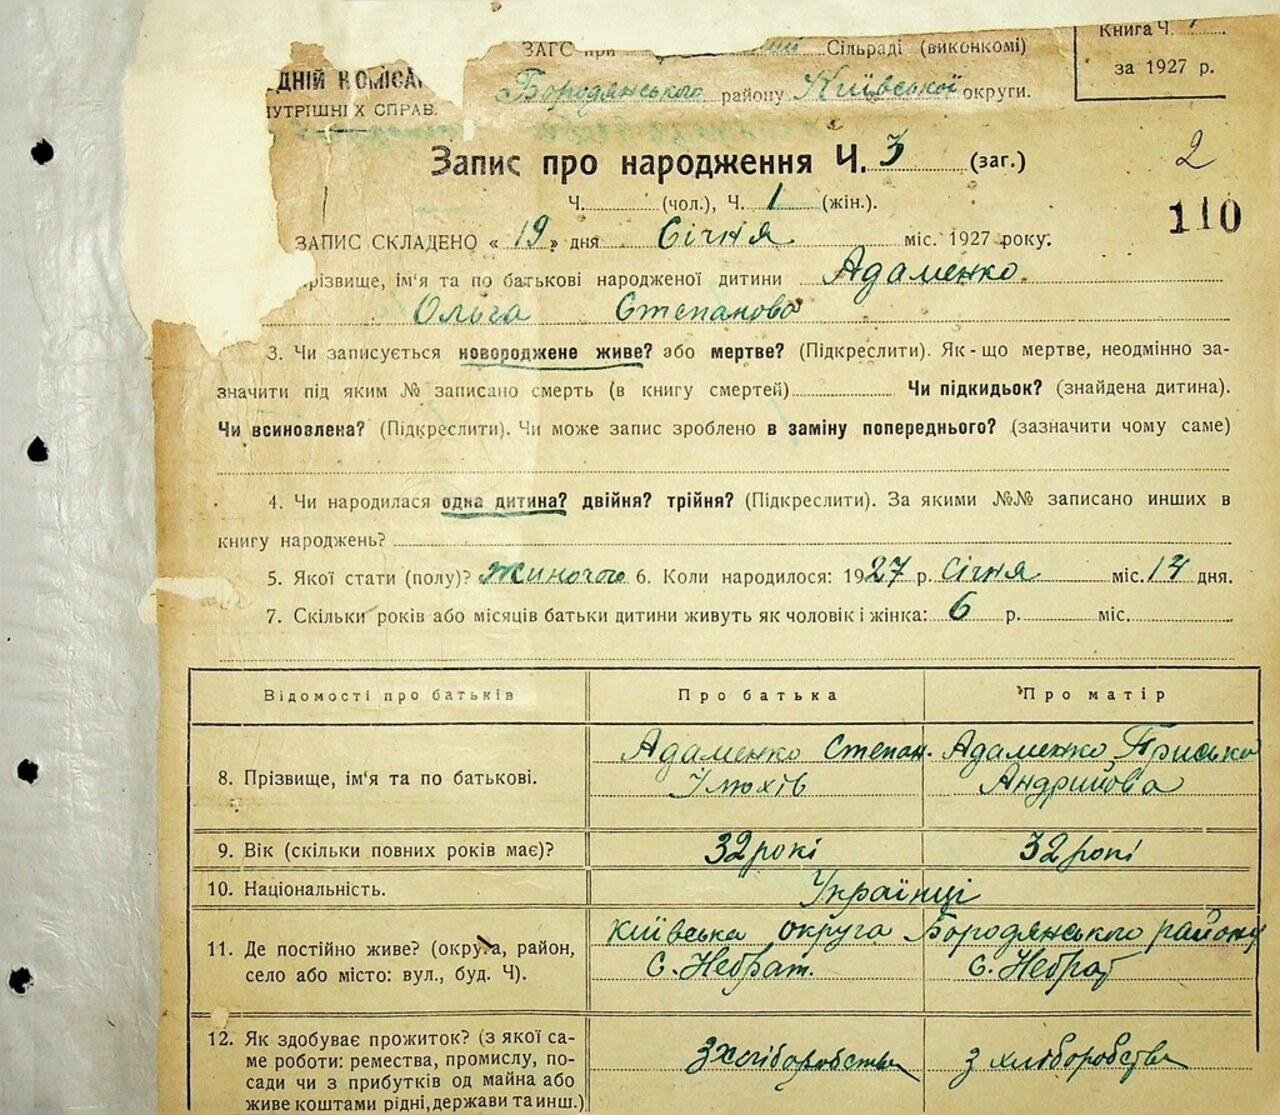 Книга Ч.
ЗАГС при Сільраді (виконкомі)
за 1927 р.
ДНІЙ КОМІСАР
НУТРІШНІХ СПРАВ.
Бородянського району Київської округи.
Запис про народження Ч. 3 (заг.)
2
Ч. (чол.), Ч. 1 (жін.).
110
ЗАПИС СКЛАДЕНО « 19 » дня Січня міс. 1927 року.
різвище, ім'я та по батькові народженої дитини Адаменко
Ольга Степанова
3. Чи записується новороджене живе? або мертве? (Підкреслити). Як-що мертве, неодмінно за-
значити під яким № записано смерть (в книгу смертей) Чи підкидьок? (знайдена дитина).
Чи всиновлена? (Підкреслити). Чи може запис зроблено в заміну попереднього? (зазначити чому саме)
4. Чи народилася одна дитина? двійня? трійня? (Підкреслити). За якими №№ записано инших в
книгу народжень?
5. Якої стати (полу)? Жиночого 6. Коли народилося: 1927 р. Січня міс. 14 дня.
7. Скільки років або місяців батьки дитини живуть як чоловік і жінка: 6 р. міс.
Відомості про батьків Про батька Про матір
8. Прізвище, ім'я та по батькові. Адаменко Степан Адаменко Присько
Ілюхів Андрийова
9. Вік (скільки повних років має)? 32 рокі 32 рокі
10. Національність. Українці
11. Де постійно живе? (округа, район, Київська округа Бородянського району
село або місто: вул., буд. Ч). С. Небрат. С. Небрат
12. Як здобуває прожиток? (з якої са-
ме роботи: ремества, промислу, по- з хліборобства з хліборобства
сади чи з прибутків од майна або
живе коштами рідні, держави та инш.)